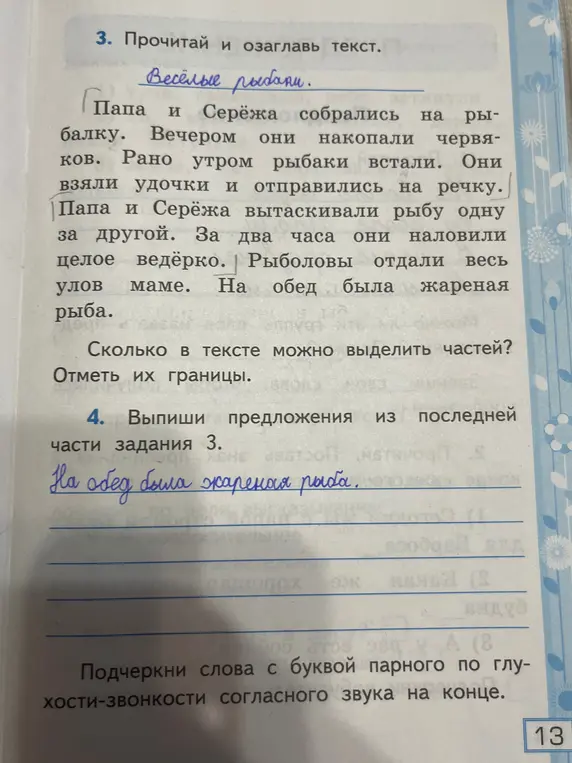 3. Прочитай и озаглавь текст.
Весёлые рыбаки.
Папа и Серёжа собрались на ры-
балку. Вечером они накопали червя-
ков. Рано утром рыбаки встали. Они
взяли удочки и отправились на речку.
Папа и Серёжа вытаскивали рыбу одну
за другой. За два часа они наловили
целое ведёрко. Рыболовы отдали весь
улов маме. На обед была жареная
рыба.
Сколько в тексте можно выделить частей?
Отметь их границы.
4. Выпиши предложения из последней
части задания 3.
На обед была жареная рыба.
Подчеркни слова с буквой парного по глу-
хости-звонкости согласного звука на конце.
13